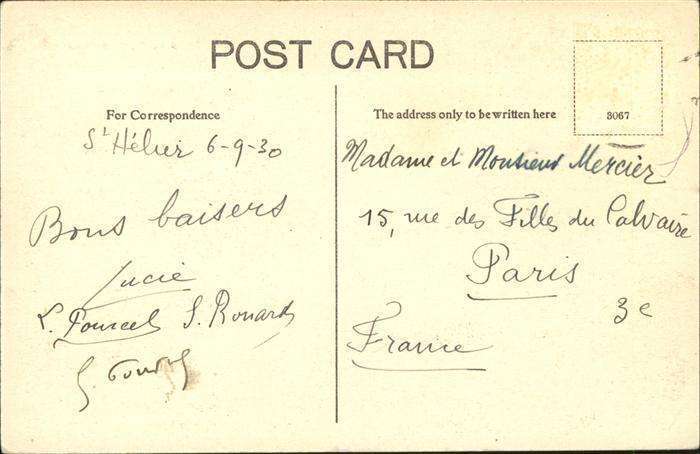 POST CARD
For Correspondence
St Hélier 6-9-30
Bons baisers
Lucie
L. Fourcel S. Rouard
G.
The address only to be written here
3067
Madame et Monsieur Mercier
15, rue des Filles du Calvaire
Paris
3e
France